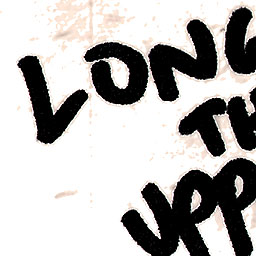 LONG
TH
UPP